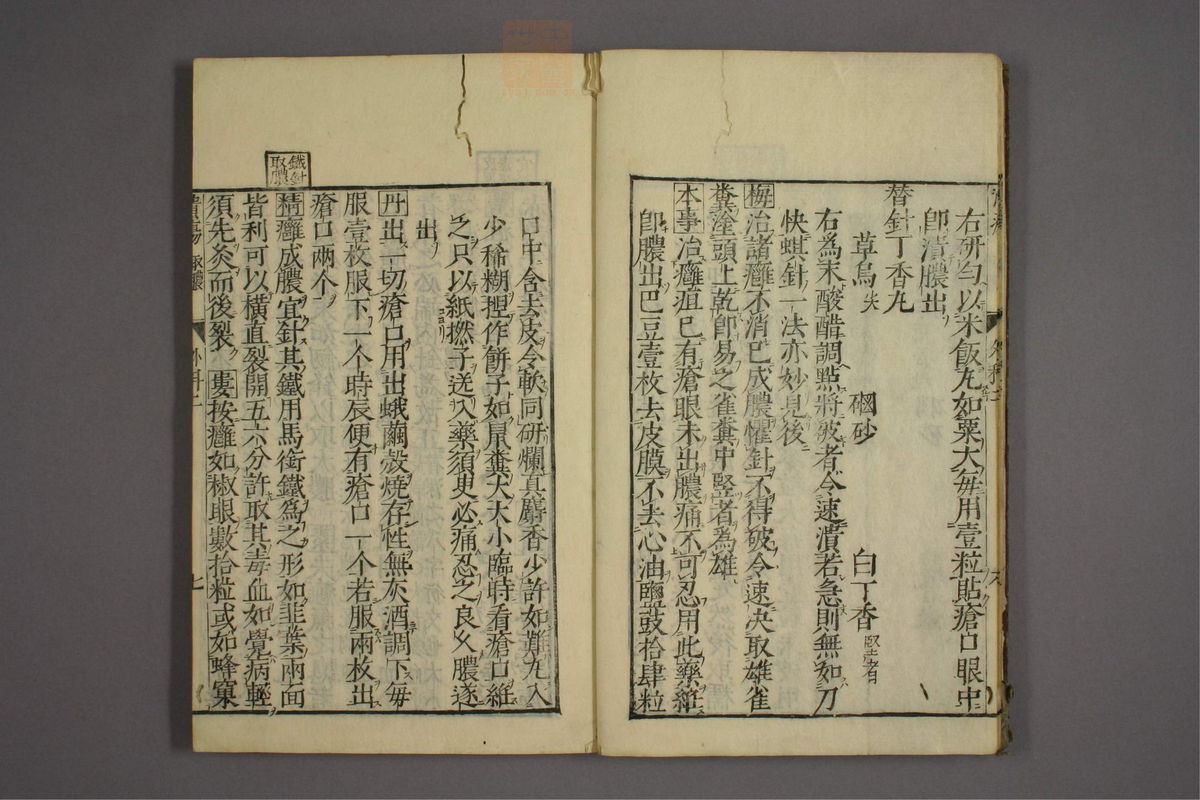 右研勻以米飯丸如粟大每用壹粒貼瘡口眼中
卽潰膿出
替針丁香丸
草烏尖 硇砂 白丁香堅者
右為末酸醋調點將破者令速潰若急則無如刀
快蜞針一法亦妙見後
梅治諸癰不消已成膿懼針不得破令速决取雄雀
糞塗頭上乾卽易之雀糞中竪者為雄
本事治癰疽已有瘡眼未出膿痛不可忍用此藥紝
卽膿出巴豆壹枚去皮膜不去心油鹽豉拾肆粒
口中含去皮令軟同研爛真麝香少許如難丸入
少稀糊揑作餅子如鼠糞大大小臨時看瘡口紝
之只以紙撚子送入藥須臾必痛忍之良久膿遂
出
丹出一切瘡口用出蛾繭殼燒存性無灰酒調下每
服壹枚服下一个時辰便有瘡口一个若服兩枚出
瘡口兩个
鐵針取膿
精癰成膿宜針其鐵用馬銜鐵為之形如韭葉兩面
皆利可以橫直裂開五六分許取其毒血如覺病輕
須先灸而後裂 婁按癰如椒眼數拾粒或如蜂窠
潰瘍 取膿 外科二 七